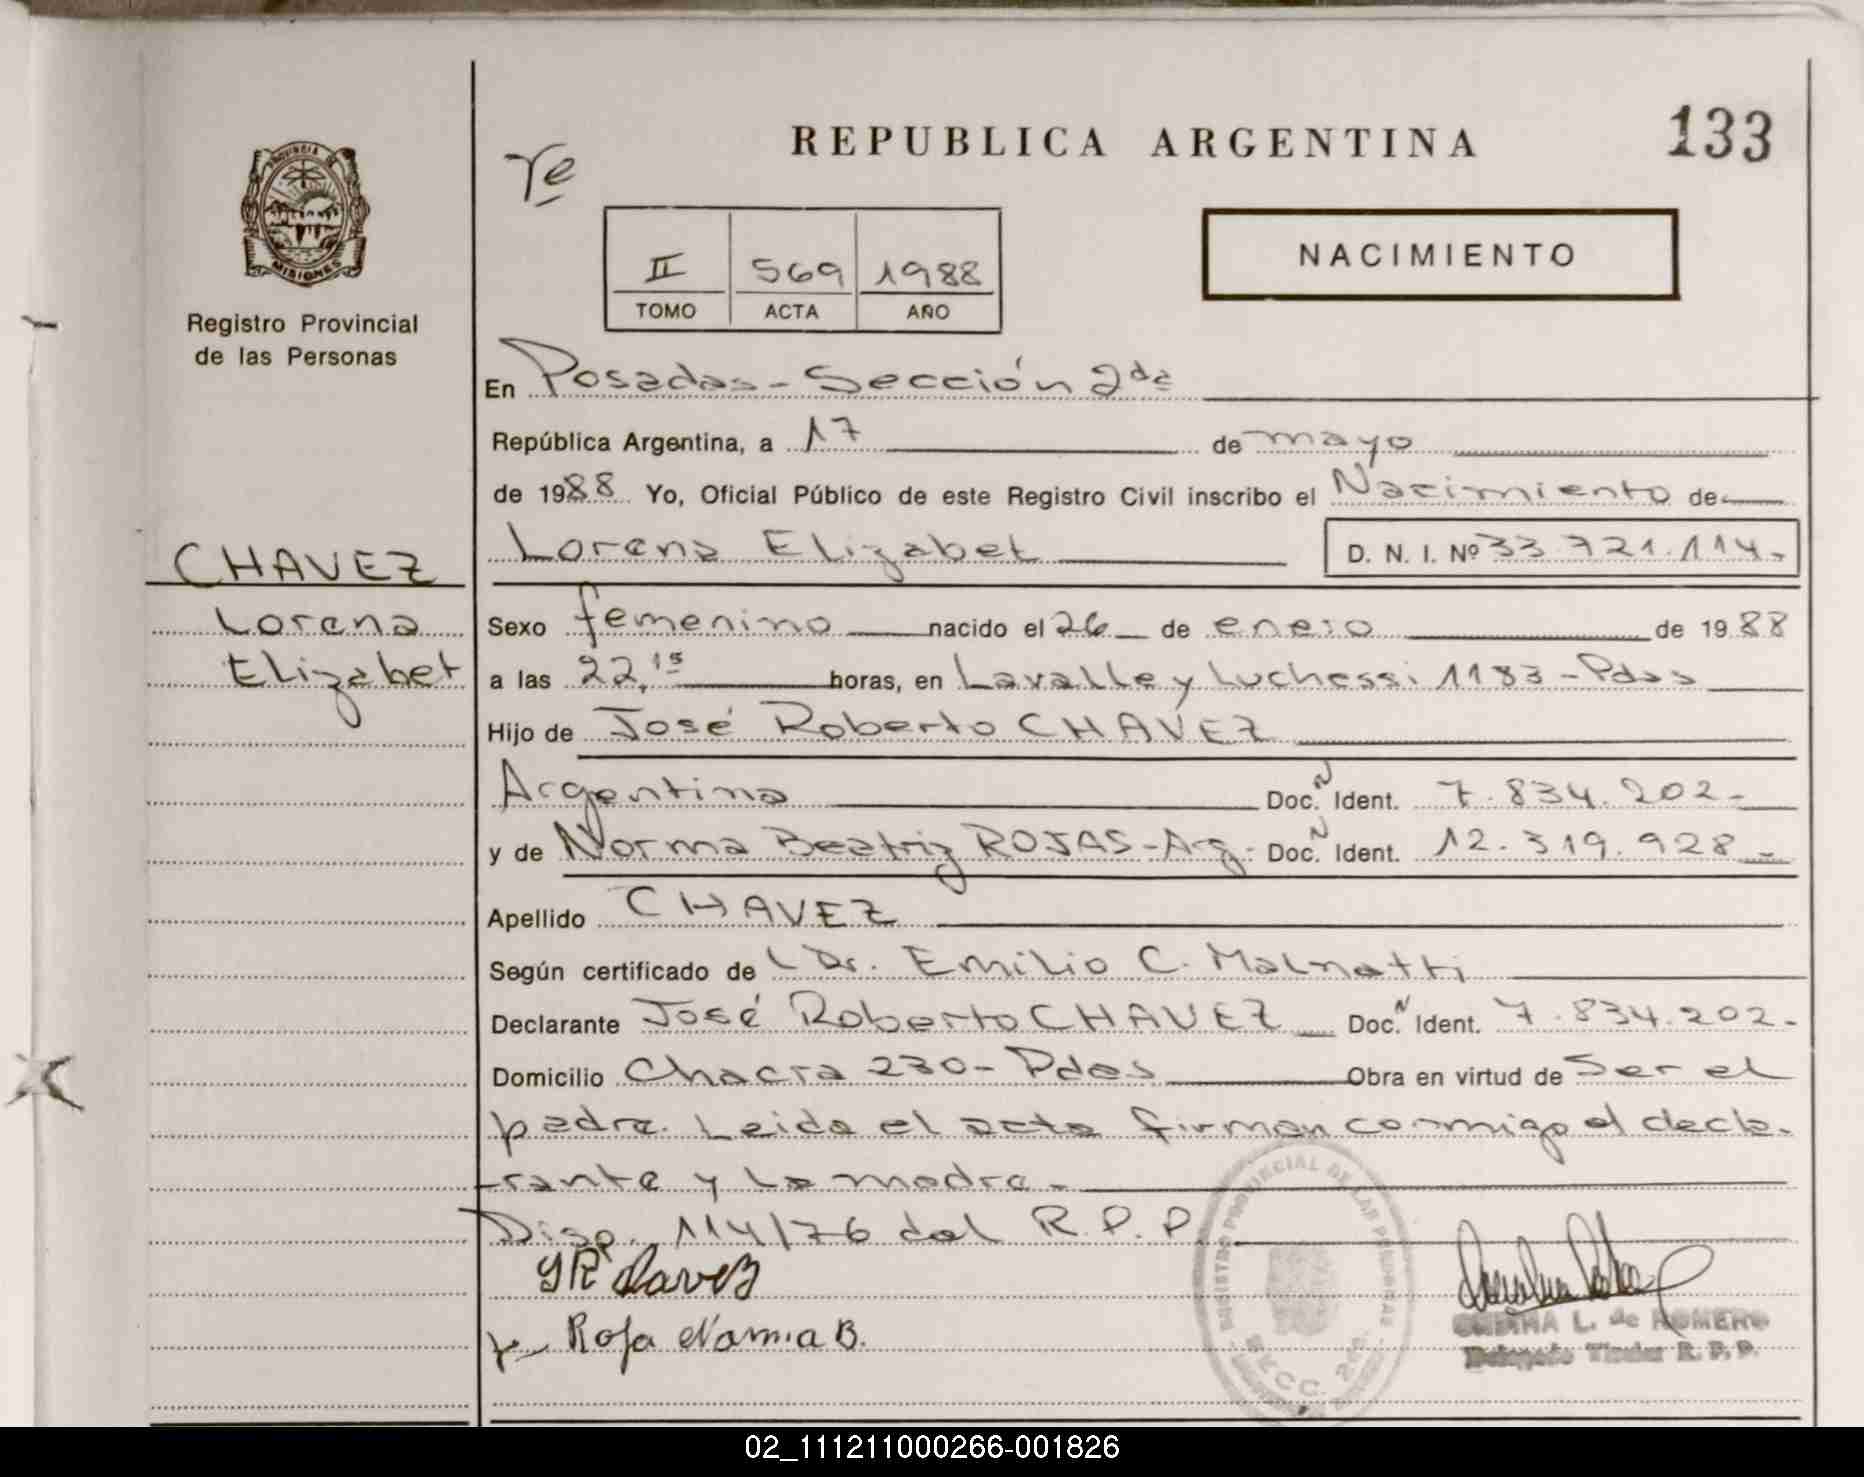 REPUBLICA ARGENTINA
133
PROVINCIA DE
MISIONES
Registro Provincial
de las Personas
II 569 1988
TOMO ACTA AÑO
NACIMIENTO
En Posadas - Sección 2da
República Argentina, a 17 de mayo
de 1988 Yo, Oficial Público de este Registro Civil inscribo el Nacimiento de
CHAVEZ
Lorena Elizabet D. N. I. Nº 33.721.114.-
Lorena
Sexo femenino nacido el 26 de enero de 1988
Elizabet
a las 22,15 horas, en Lavalle y Luchessi 1183 - Pdas
Hijo de José Roberto CHAVEZ
Argentina Doc. N Ident. 7.834.202-
y de Norma Beatriz ROJAS - Arg. Doc. N Ident. 12.319.928-
Apellido CHAVEZ
Según certificado de Dr. Emilio C. Malnatti
Declarante José Roberto CHAVEZ Doc. N Ident. 7.834.202-
Domicilio Chacra 230 - Pdas Obra en virtud de Ser el
padre. Leida el acta firman conmigo el decla-
rante y la madre.-
Disp. 114/76 del R.P.P.
REGISTRO PROVINCIAL DE LAS PERSONAS
Rojas Norma B.
L. de ROMERO
Delegado Titular R.P.P.
02_111211000266-001826